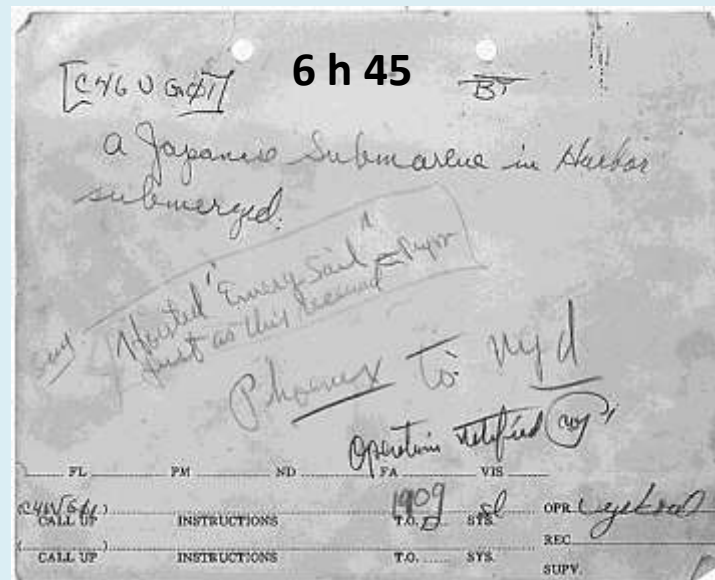 6 h 45
BT
a Japanese Submarine in Harbor
submerged.
Hoisted "Enemy Sail"
just as this received
Phoenix to nyd
Operations notified
FL PM ND FA VIS
1909
CALL UP INSTRUCTIONS T.O. SYS. OPR
REC
CALL UP INSTRUCTIONS T.O. SYS.
SUPV.